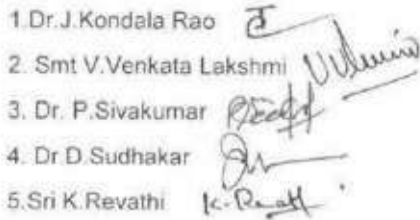 1.Dr.J.Kondala Rao
2. Smt V.Venkata Lakshmi
3. Dr. P.Sivakumar
4. Dr D.Sudhakar
5.Sri K.Revathi K. Revathi